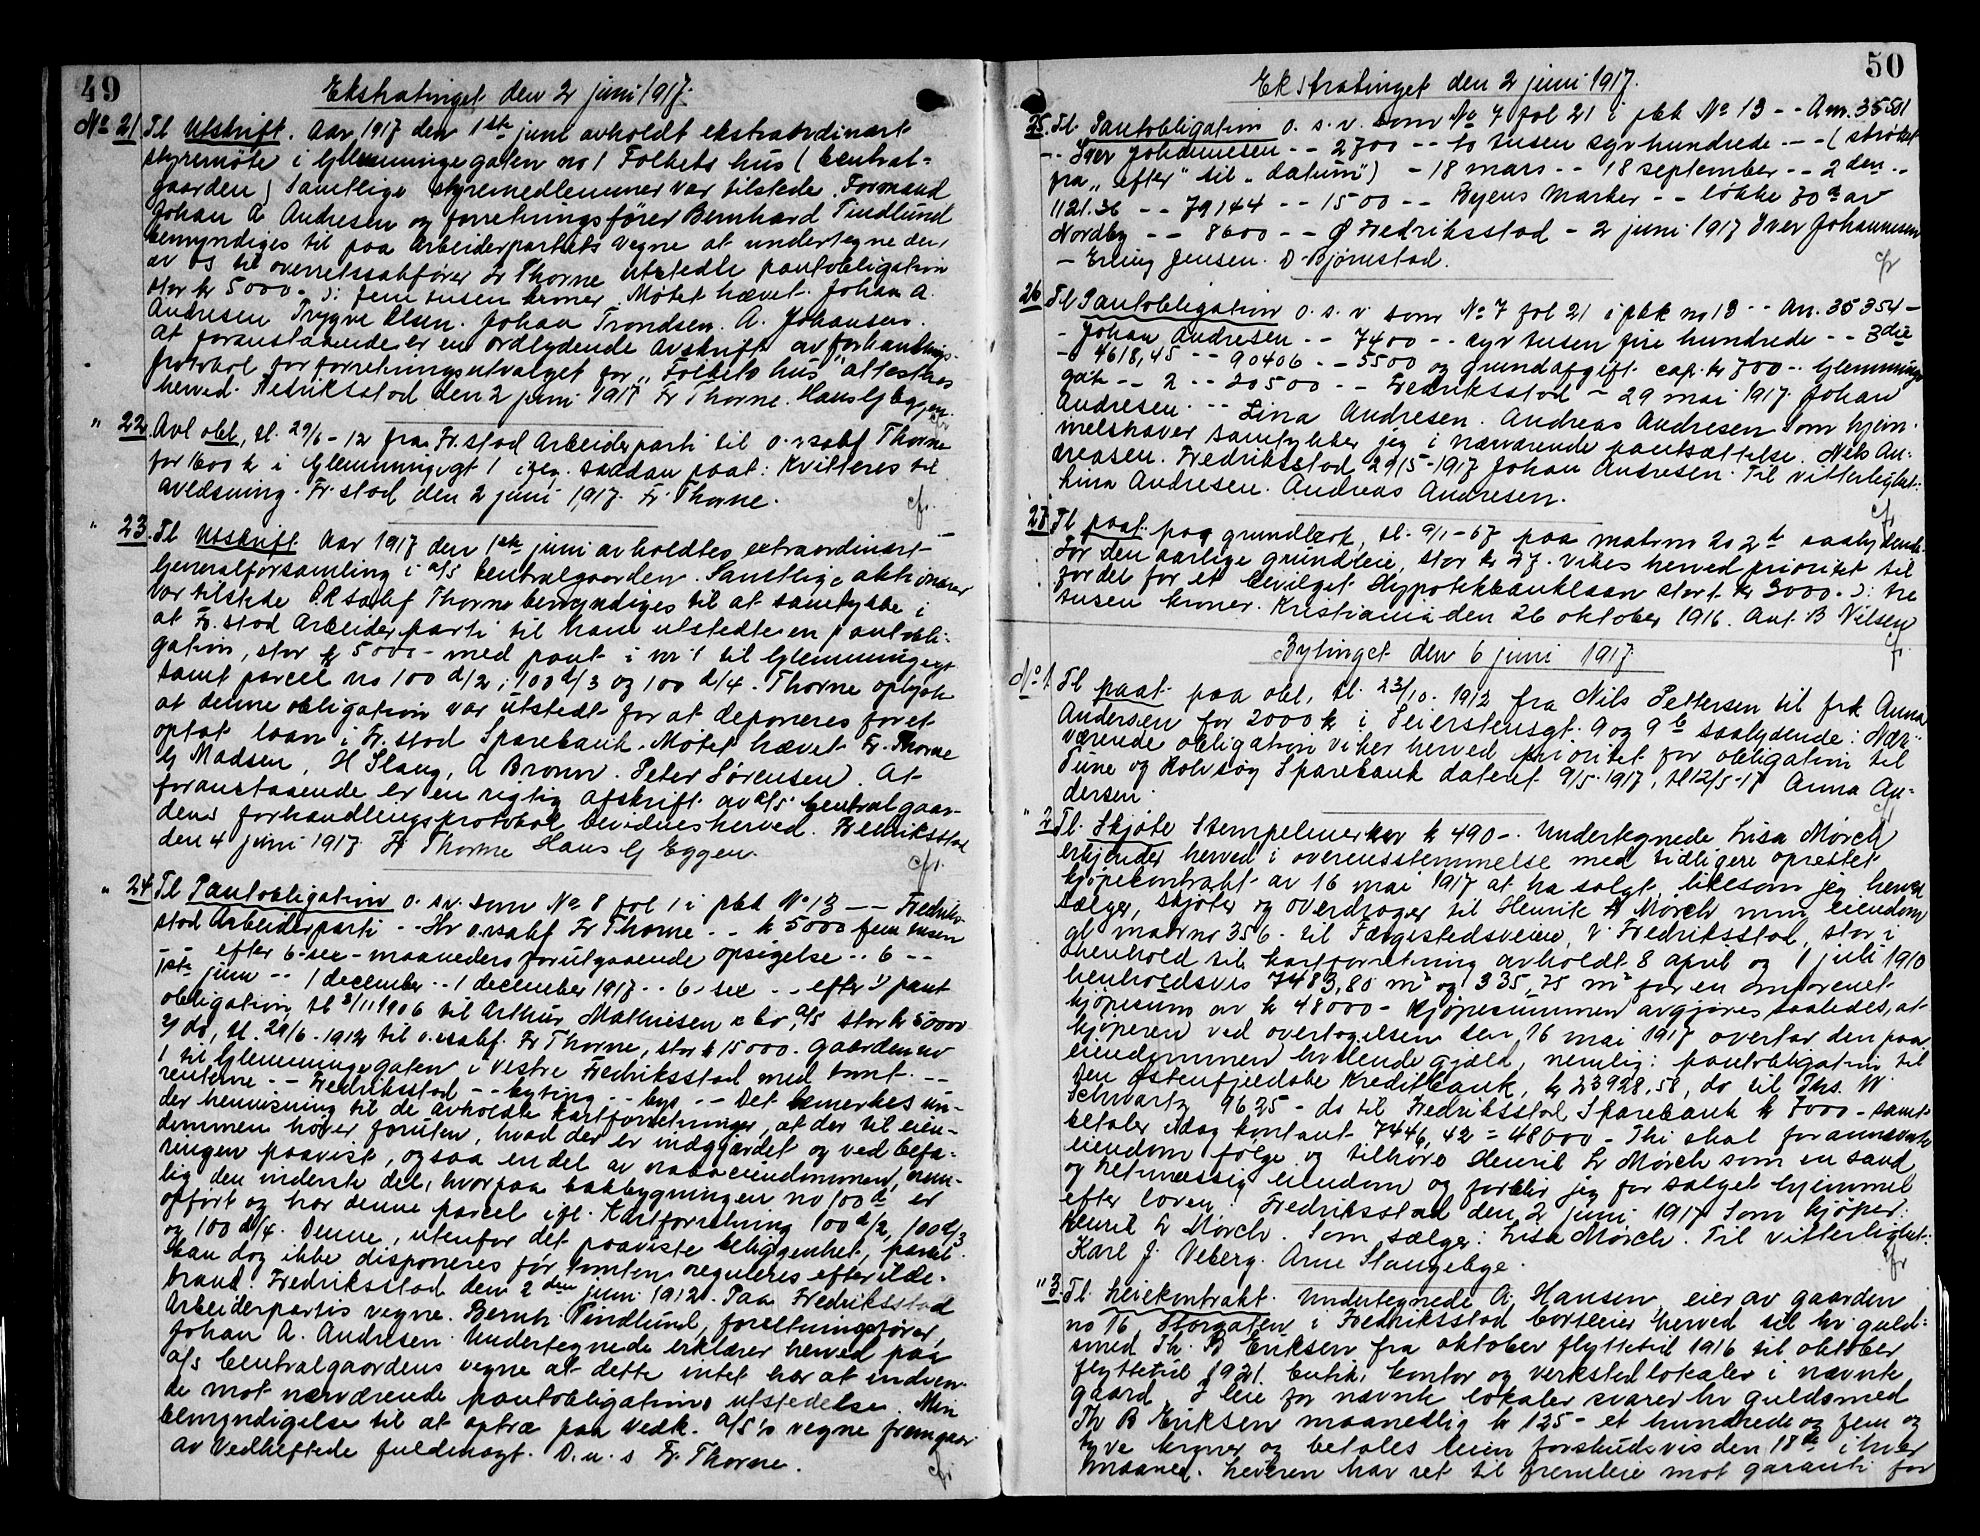 49
Ekstratinget den 2 juni 1917.
No 21 Tl Utskrift. Aar 1917 den 1ste juni avholdt ekstraordinært
styremöte i Glemmingegaten no 1 Folkets hus (Central-
gaarden) Samtlige styremedlemmer var tilstede. Formand
Johan A Andresen og forretningsfører Bernhard Tindlund
bemyndiges til paa Arbeiderpartiets vegne at undertegne den
av os til overretssakfører Fr Thorne utstedte pantobligation
stor kr 5000 - ɔ: fem tusen kroner. Møtet hævet. Johan A.
Andresen Trygve Olsen. Johan Trondsen. A. Johansen.
At foranstaaende er en ordlydende avskrift av forhandlings-
protokol for forretningsutvalget for "Folkets hus" attesteres
herved. Fredriksstad den 2 juni 1917 Fr Thorne. Hans G Eggen.
cfr
" 22. Avl obl, tl. 29/6 - 12 fra Fr.stad Arbeiderparti til o.r.sakf Thorne
for 1600 k i Glemminggt 1 igjen. saadan paat: Kvitteres til
avlæsning. Fr.stad den 2 juni 1917. Fr Thorne.
cfr.
" 23. Tl Utskrift Aar 1917 den 1ste juni avholdtes extraordinært
Generalforsamling i A/S Centralgaarden. Samtlige aktionærer
var tilstede O.R.sakf Thorne bemyndiges til at samtykke i
at Fr.stad Arbeiderparti til ham utstedte en pantobli-
gation, stor k 5000 - med pant i nr 1 til Glemminggt
samt parcel no 100 d/2, 100 d/3 og 100 d/4. Thorne oplyste
at denne obligation var utstedt for at deponeres for et
optat laan i Fr.stad Sparebank. Møtet hævet Fr. Thorne
G Madsen, H Slang, A Bronn. Peter Sørensen. At
foranstaaende er en rigtig afskrift av A/S Centralgaar-
dens forhandlingsprotokol bevidnes herved. Fredriksstad
den 4 juni 1917. Fr Thorne Hans G Eggen.
cfr.
" 24 Tl Pantobligation o.s.v. som No 8 fol 1 i pbk No 13 -- Fredrik-
stad Arbeiderparti -- Hr o.r.sakf Fr Thorne -- k 5000 fem tusen
-- efter 6-sex- maaneders forutgaaende opsigelse -- 6 --
1ste juni -- 1 december -- 1 december 1917 -- 6 - sex -- efter 1) pant
obligation, tl 3/11 1906 til Arthur Mathiesen & Co, A/S stor kr 50000
2) do, tl. 29/6. 1912 til o.r.sakf. Fr Thorne, stor k 15000. gaarden no
1 til Glemmingegaten i vestre Fredriksstad med tomt --
renterne -- Fredriksstad -- byting -- bys -- Det bemerkes un-
der henvisning til de avholdte kartforretninger, at der til eien-
dommen hører foruten, hvad der er indgjerdet og ved befa-
ringen paavist, ogsaa en del av naboeiendommen, nem-
lig den inderste del, hvorpaa bakbygningen no 100 d er
opført og har denne parcel ifl. Kartforretning 100 d/2, 100 d/3
og 100 d/4. Denne, utenfor det paaviste beliggenhet, parcel
kan dog ikke disponeres før tomten reguleres efter ilde-
brand. Fredriksstad den 2den juni 1912. Paa Fredriksstad
Arbeiderpartis vegne. Bernh. Tindlund, forretningsfører,
Johan A. Andresen Undertegnede erklærer herved paa
A/S Centralgaardens vegne at dette intet har at indven-
de mot nærværende pantobligations utstedelse. Min
bemyndigelse til at optræ paa vedk. A/S's vegne fremgaar
av vedheftede fuldmagt. D.u.s Fr. Thorne.
cfr
50
Ekstratinget den 2 juni 1917.
25. Tl. Pantobligation o.s.v. som No 7 fol 21 i pbk No 13 -- An. 35501
-- Iver Johannesen -- 2700 -- to tusen syvhundrede -- (strøket
fra "efter" til "datum") - 18 mars -- 18 september -- 2den --
1121.36 -- 79144 -- 1500 -- Byens Marker -- løkke 70 a av
Nordby -- 8600 -- Ø Fredriksstad - 2 juni 1917 Iver Johannesen
- Erling Jensen. D Bjørnstad.
cfr
26 Tl Pantobligation o.s.v som No 7 fol 21 i pbk no 13 -- An. 35354 -
- Johan Andresen -- 7400 -- syv tusen fire hundrede -- 3die
- 4618,45 -- 90406 -- 5500 og grundafgift cap. kr 700 -- Glemminge
gate -- 2 -- 20500 -- Fredriksstad - 29 mai 1917. Johan
Andresen -- Lina Andresen. Andreas Andresen Som hjem-
melshaver samtykker jeg i nærværende pantsættelse. Nils An-
dreasen. Fredriksstad 29/5-1917 Johan Andresen. Til vitterlighet:
Lina Andresen. Andreas Andresen.
cfr
27. Tl paat. paa grundbrev, tl. 9/1 - 67 paa matr no 202 d saalydende:
For den aarlige grundleie, stor kr 27. vikes herved prioritet til
fordel for et bevilget Hypotekbanklaan stort kr 3000 - ɔ: tre
tusen kroner. Kristiania den 26 oktober 1916. Ant. B Nilsen
cfr.
Bytinget den 6 juni 1917.
No 1. Tl paat. paa obl, tl. 23/10. 1912 fra Nils Pettersen til frk Anna
Andersen for 2000 k i Seierstensgt. 9 og 9 b saalydende: Nær-
værende obligation viker herved prioritet for obligation til
Tune og Rolvsøy Sparebank dateret 9/5-1917, tl 12/5-17 Anna An-
dersen.
cfr
" 2 Tl. Skjøte Stempelmerker k 490 -. Undertegnede Lisa Mørch
erkjender herved i overensstemmelse med tidligere oprettet
kjøpekontrakt av 16 mai 1917 at ha solgt, likesom jeg herved
sælger, skjøter og overdrager til Henrik L Mørch min eiendom
gl matr no 356. til Færgestedsveien, V. Fredriksstad, stor i
henhold til kartforretning avholdt 8 april og 1 juli 1910
henholdsvis 7483,80 m² og 335,75 m² for en omforenet
kjøpesum av k 48000 - Kjøpesummen avgjøres saaledes, at
kjøperen ved overtagelsen den 16 mai 1917 overtar den paa
eiendommen hvilende gjæld, nemlig: pantobligation til
den Østenfjeldske Kreditbank, kr 23928.58, do til Ths. W.
Schwartz 9625 - do til Fredriksstad Sparebank kr 7000 - samt
betaler idag kontant 7446,42 = 48000 - Thi skal forannævnte
eiendom følge og tilhøre Henrik L Mørch som en sand
og retmæssig eiendom og forblir jeg for salget hjemmel
efter loven. Fredriksstad den 2 juni 1917 Som kjøper:
Henrik L Mørch. Som sælger: Lisa Mørch. Til vitterlighet:
Karl J. Veberg. Arne Slangebye.
cfr
" 3. Tl. Leiekontrakt. Undertegnede A. Hansen, eier av gaarden
no 16 Storgaten i Fredriksstad bortleier herved til hr guld-
smed Th. B Eriksen fra oktober flyttetid 1916 til oktober
flyttetid 1921. butik, kontor og verkstedlokaler i nævnte
gaard. I leie for nævnte lokaler svarer hr guldsmed
Th B Eriksen maanedlig kr 125 - et hundrede og fem og
tyve kroner og betales leien forskudsvis den 18de i hver
maaned. Leieren har ret til fremleie mot garanti for